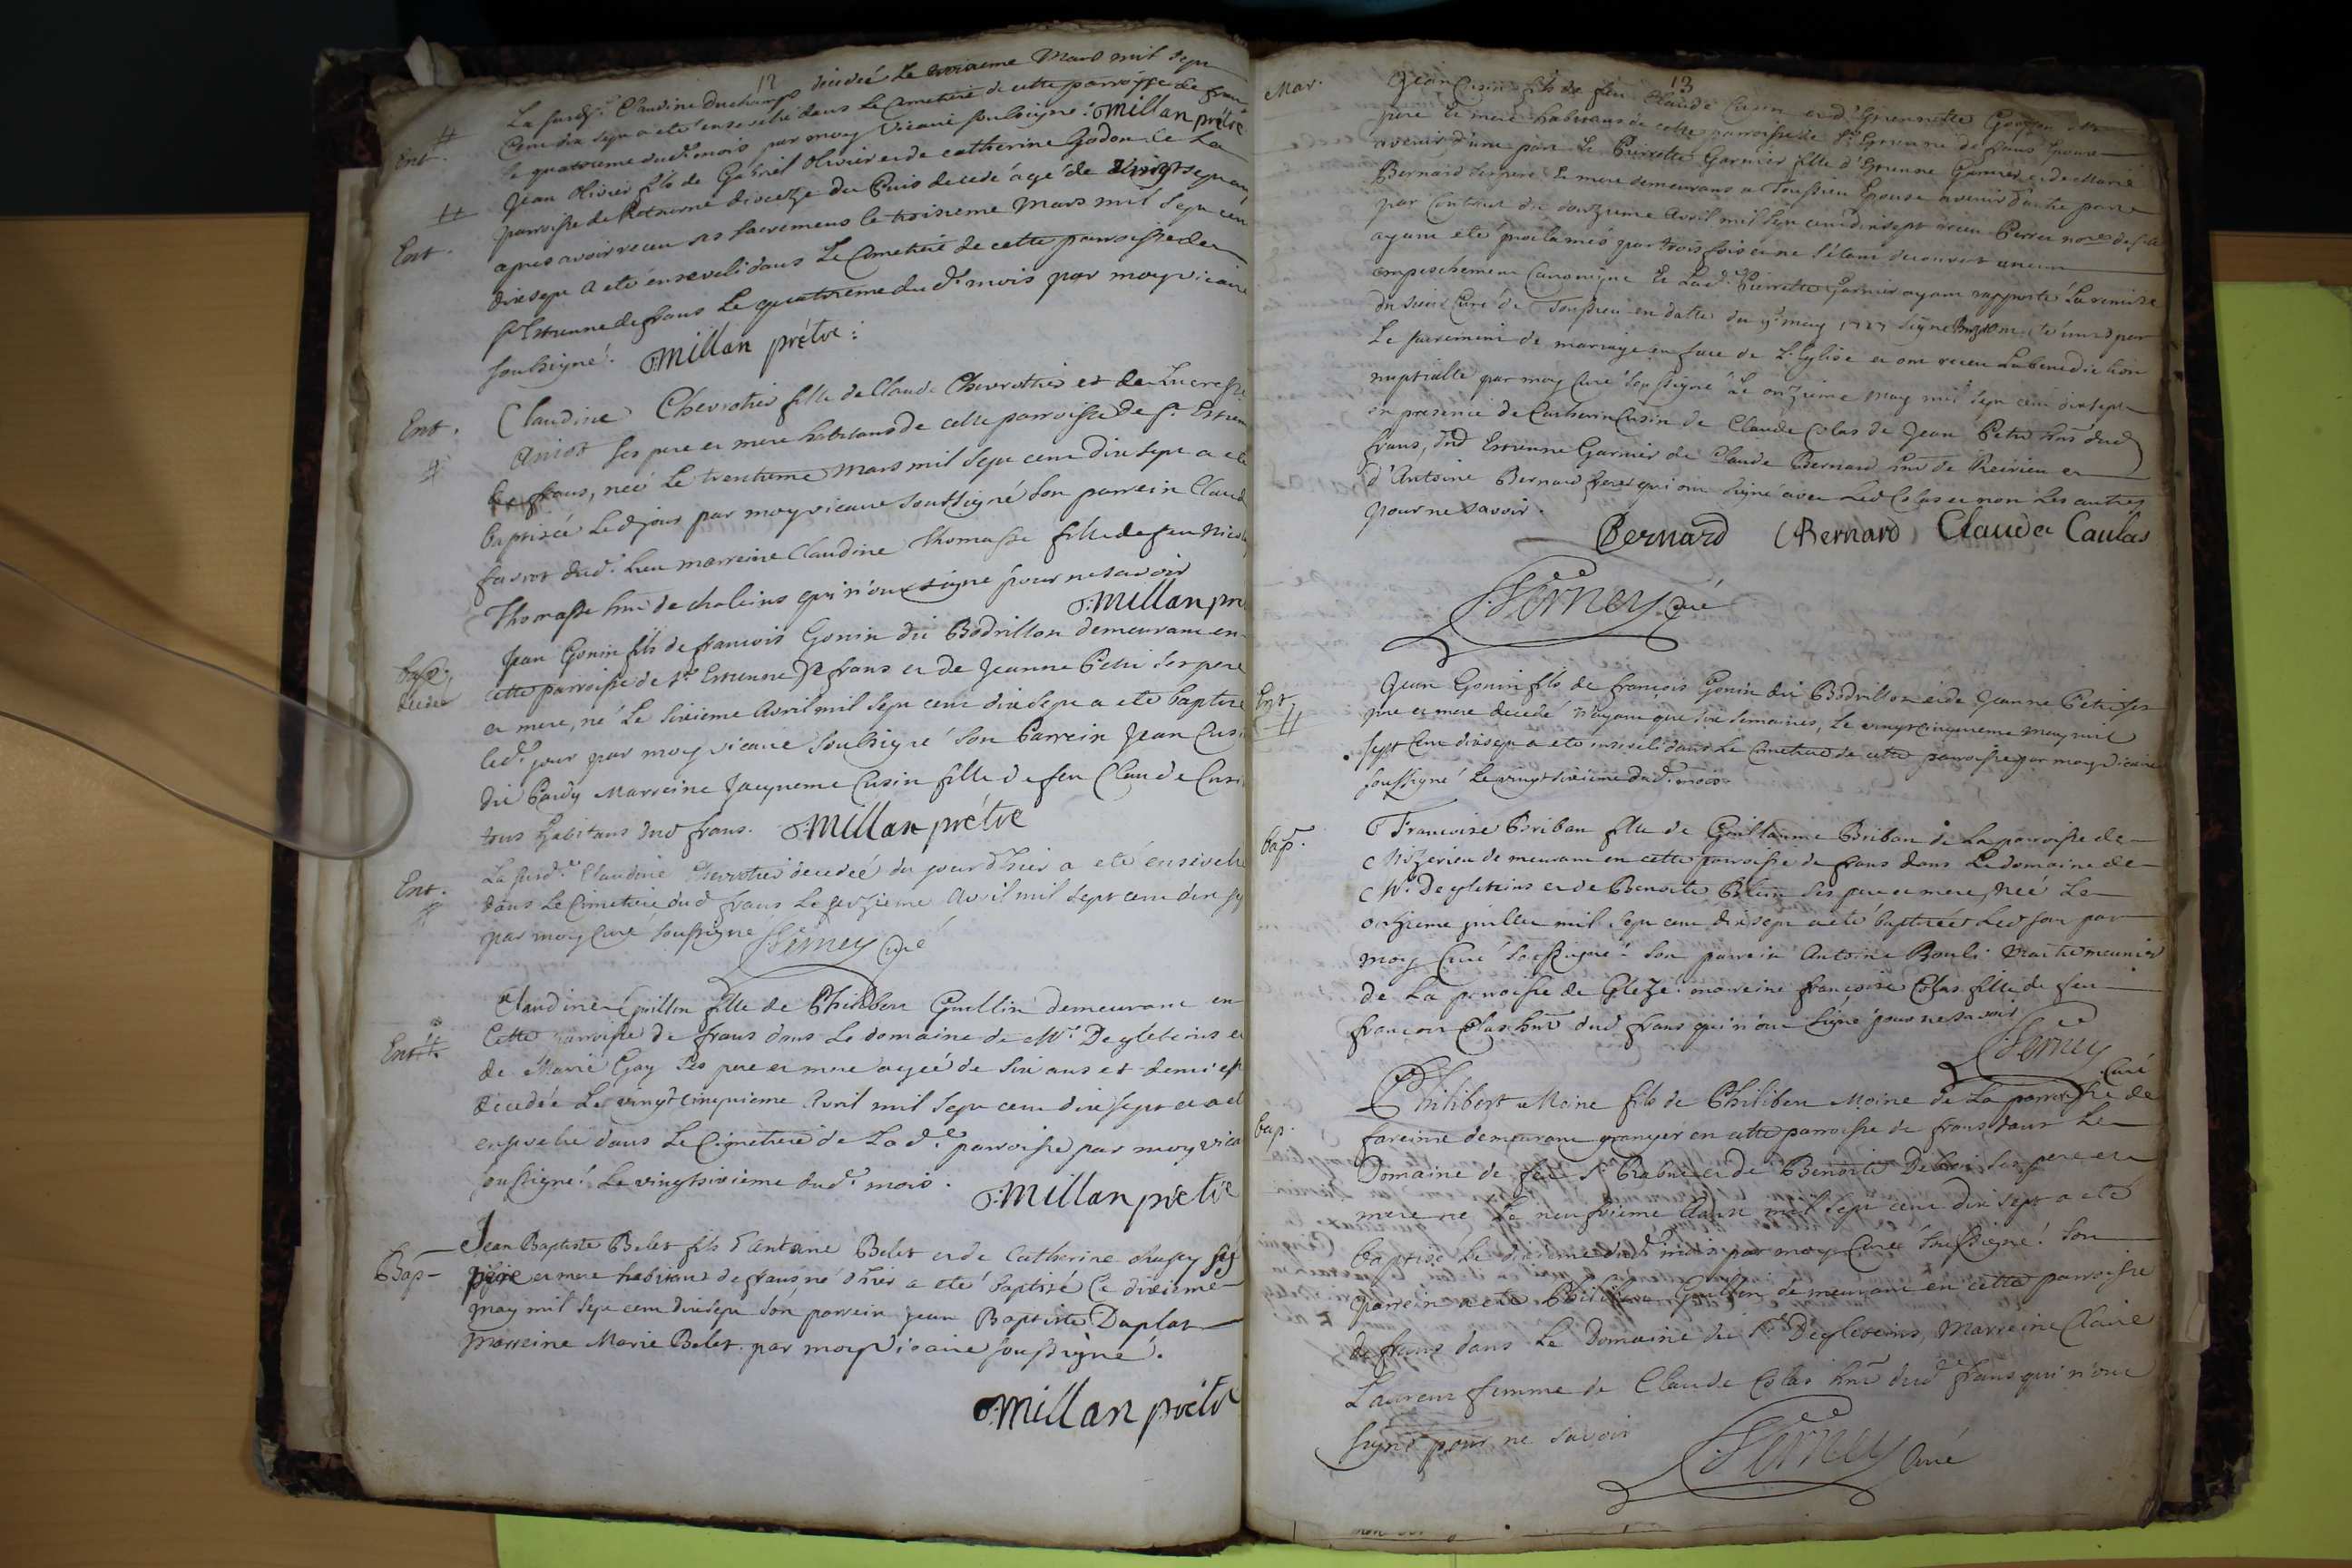 12
La susd.e Claudine Duchamp decedée Le troisieme Mars mil Sept
Ent. Cent dix sept a eté ensevelie dans Le Cimetiere de cette parroisse de frans
Le quatrieme dud. mois par moy Vicaire soussigné. Millan prétre
Ent. Jean Olivier fils de Gabriel Olivier et de catherine Godon de La
parroisse de diocetze du Puis decedé agé de vingt sept ans
apres avoir receu ses sacremens le troisieme Mars mil Sept cent
dix sept a eté enseveli dans Le Cimetiere de cette parroisse de
St Estienne de frans Le quatrieme du d. mois par moy vicaire
soussigné. Millan prétre
Ent. Claudine Chevrotier fille de Claude Chevrotier et de Lucresse
Aniot ses pere et mere habitans de cette parroisse de St. Estienne
de frans, neé Le trentieme Mars mil Sept cent dix sept a eté
baptisée Led jour par moy vicaire soussigné son parrein Claude
favrot dud. lieu marreine Claudine Thomasse fille de feu Nicolas
Thomasse hnt de chaleins qui n'ont signé pour ne savoir
Millan pre
bap. decedé Jean Gonin fils de francois Gonin dit Bodrillon demeurant en
cette parroisse de St Estienne de frans et de Jeanne Petit ses pere
et mere, né Le sixieme Avril mil Sept cent dix sept a eté baptisé
led. jour par moy vicaire soussigné son Parrein Jean Cusin
dit Pardy Marreine Jacqueme Cusin fille de feu Claude Cusin
tous habitans dud frans. Millan prétre
Ent. La susd.e Claudine Chevrotier decedée du jour d'hier a eté ensevelie
dans Le Cimetiere dud frans Le seizieme Avril mil Sept cent dix sept
par moy Curé soussigné Ferney Curé
Ent. Claudine Guillin fille de Philibert Guillin demeurant en
Cette parroisse de frans dans Le domaine de Mr. Degleteins et
de Marie Gay ses pere et mere agée de six ans et demi est
decedée Le vingt cinquieme Avril mil Sept cent dix sept et a eté
ensevelie dans Le Cimetiere de La d.e parroisse par moy vicaire
soussigné Le vingt sixieme dud. mois.
Millan prétre
Bap Jean Baptiste Belet fils d'Antoine Belet et de Catherine ses
pere et mere habitans de frans né d'hier a eté baptisé Le dixieme
may mil Sept cent dix sept son parrein Jean Baptiste Duplat
marreine Marie Belet par moy Vicaire soussigné.
Millan prétre
13
Mar. Jean Cusin fils de feu Claude Cusin et d'Estiennette ses
pere et mere habitans de cette parroisse de St Estienne de frans Epoux
avenir d'une part Et Pierrette Garnier fille d'Estienne Garnier et de Marie
Bernard ses pere et mere demeurans a Toussieu Epouse avenir d'autre part
par Contract du Avril mil Sept cent dix sept receu Perret nore
ayant eté proclamés par trois fois et ne s'etant decouvert aucun
empeschement Canonique Et Lad. Pierrette Garnier ayant rapporté La remise
du sieur Curé de Toussieu en datte du 9e may 1717 signé
Le sacrement de mariage en face de L'Eglise et ont receu La benediction
nuptialle par moy Curé Soussigné Le onzieme May mil Sept cent dix sept
en presence de Catherin Cusin de Claude Colas de Jean Petit hnts dud
frans, dud Estienne Garnier de Claude Bernard hnt de Reirieu et
d'Antoine Bernard freres qui ont signé avec Led Colas et non Les autres
pour ne savoir.
Bernard CBernard Claude Caulas
Ferney Curé
Ent. Jean Gonin fils de francois Gonin dit Bodrillon et de Jeanne Petit ses
pere et mere decedé n'ayant que six semaines, Le vingt cinquieme may mil
sept Cent dix sept a eté enseveli dans Le Cimetiere de cette parroisse par moy Vicaire
soussigné Le vingt sixieme dud. mois.
bap. Francoise Briban fille de Guillaume Briban de La parroisse de
Mizerieu demeurant en cette parroisse de frans dans Le domaine de
Mr. Degleteins et de Benoite Blein ses pere et mere, neé Le
onzieme juillet mil Sept cent dix sept a eté baptisée Led jour par
moy Curé Soussigné son parrein Antoine Bouli Maitre meunier
de La parroisse de Glezé marreine francoise Colas fille de feu
francois Colas hnt dud frans qui n'ont signé pour ne savoir
Ferney Curé
bap. Philibert Moine fils de Philibert Moine de La parroisse de
fareins demeurant granger en cette parroisse de frans dans Le
Domaine de feu Sr. et de Benoite ses pere et
mere né Le neufvieme Aoust mil Sept cent dix sept a eté
baptisé Le dixieme dud. mois par moy Curé Soussigné! Son
parrein a eté Philibert Guillin demeurant en cette parroisse
de frans dans Le Domaine du Sr. Degleteins, Marreine Claire
Laurent femme de Claude Colas hnt dud frans qui n'ont
signé pour ne savoir
Ferney Curé